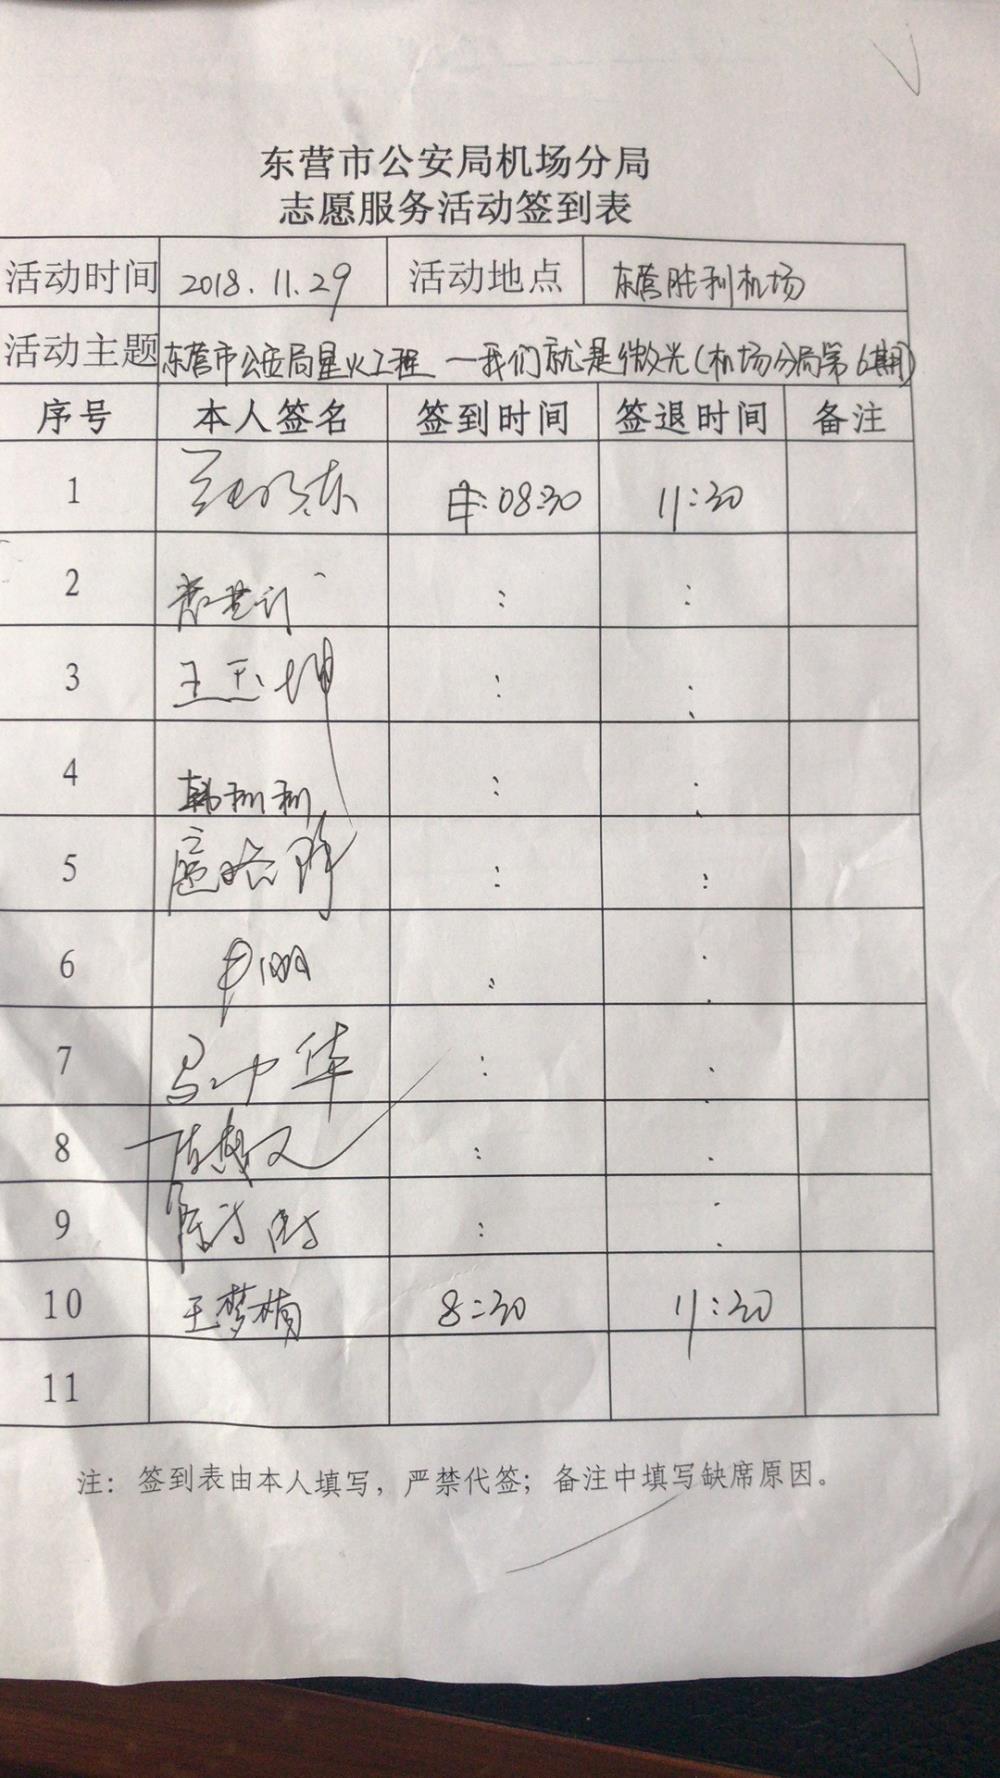 东营市公安局机场分局
志愿服务活动签到表
活动时间 2018.11.29 活动地点 东营胜利机场
活动主题 东营市公安局星火工程 一我们就是微光(机场分局第6期)
序号 本人签名 签到时间 签退时间 备注
1 08:30 11:30
2 : :
3 王玉坤 : :
4 韩利利 : :
5 : :
6 : :
7 马中华 : :
8 : :
9 : :
10 王梦楠 8:30 11:30
11
注：签到表由本人填写，严禁代签；备注中填写缺席原因。